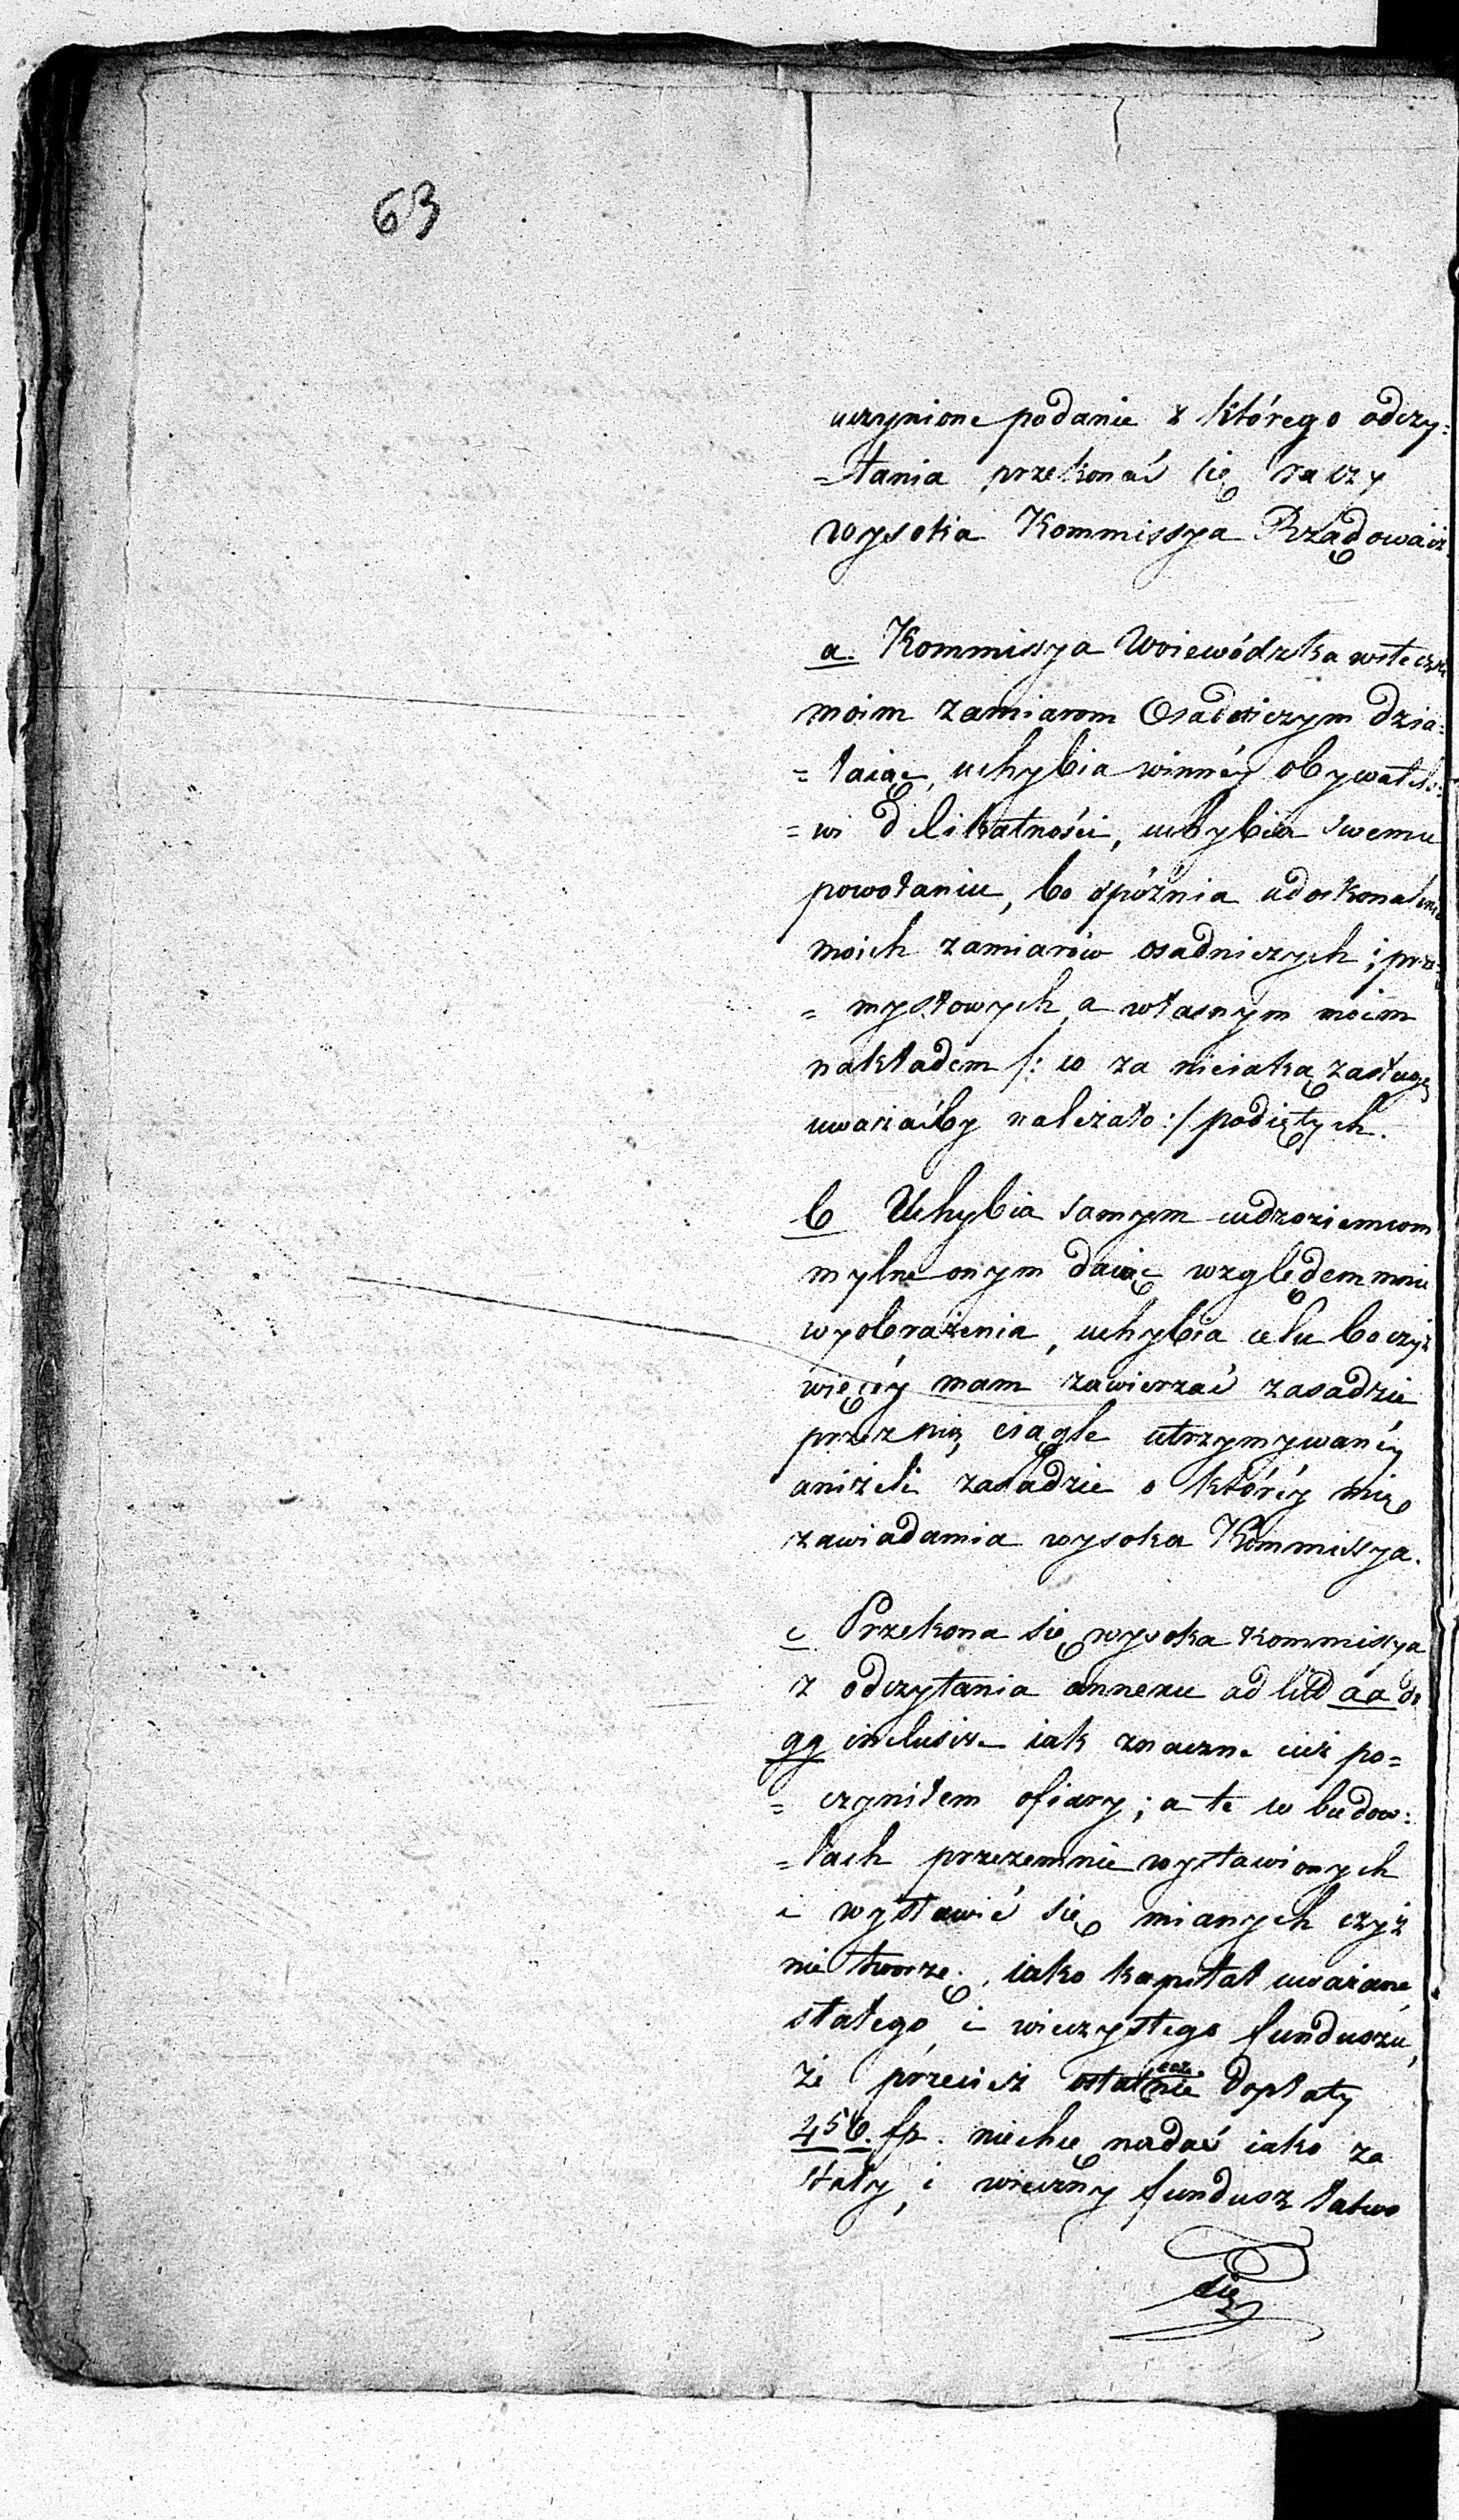 63
uczynione podanie z którego odczy=
=tania przekonać się raczy
wysoka Kommissya Rządowa iż
a. Kommissya Woiewódzka wstecz
moim zamiarom Osadniczym dzia=
=łaiąc, uchybia winnéy obywatelo=
=wi delikatności, uchybia swemu
powołaniu, bo opóźnia udoskonalenie
moich zamiarów osadniczych i prze=
=mysłowych, a własnym moim
nakładem /: co za nieiaką zasługę
uważaćby należało :/ podiętych.
b Uchybia samym cudzoziemcom
mylne onym daiąc względem mnie
wyobrażenia, uchybia celu bo czyż
więcéy mam zawierzać zasadzie
przez nią ciągle utrzymywanéy
aniżeli zasadzie o któréy mię
zawiadamia wysoka Kommissya.
c Przekona się wysoka Kommissya
z odczytania annexu ad litt aa do
gg inclusive iak znaczne iuż po=
=czyniłem ofiary; a te w budow=
=lach przezemnie wystawionych
i wystawić się mianych czyż
nie tworzę, iako kapitał uważane,
stałego i wieczystego funduszu,
że przecież dopłaty
456. fp. niechcę nadać iako za
stały, i wieczny fundusz łatwo
się